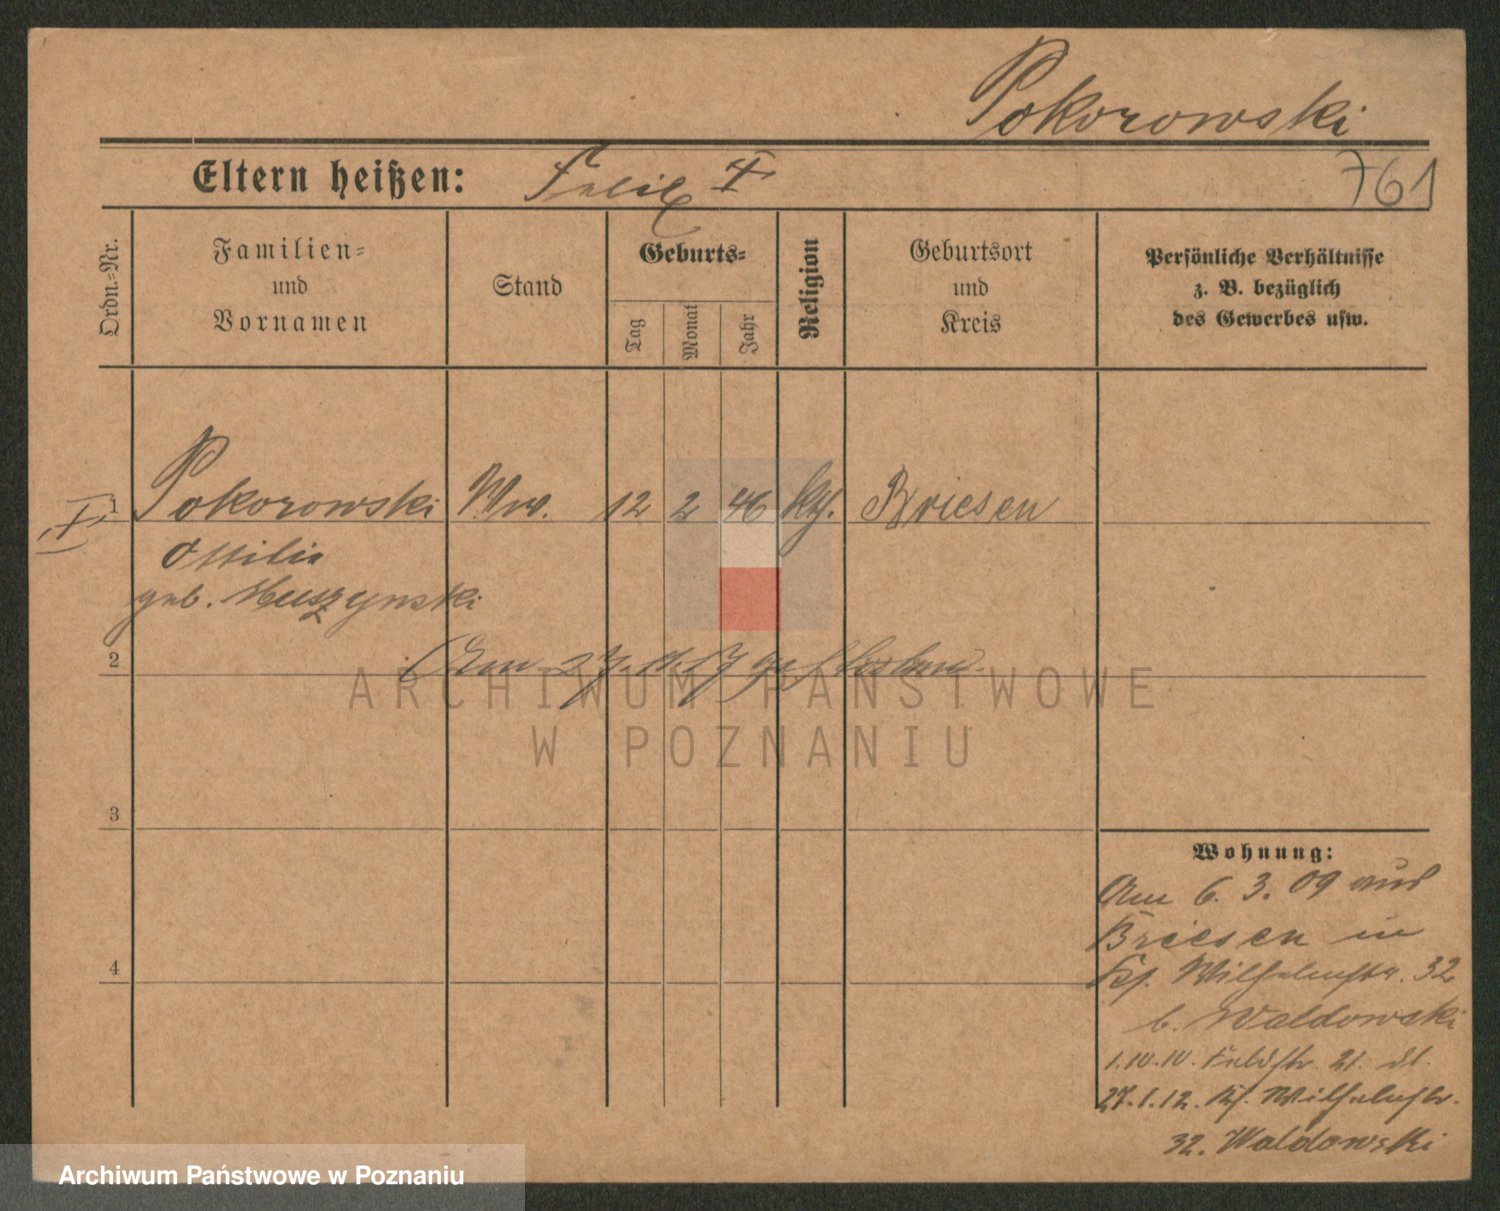 Pokorowski
Eltern heißen: Felix †
761
Ordn.-Nr.
Familien-
und
Vornamen
Stand
Geburts-
Tag
Monat
Jahr
Religion
Geburtsort
und
Kreis
Persönliche Verhältnisse
z. B. bezüglich
des Gewerbes usw.
1 Pokorowski Ww. 12 2 46 kth. Briesen
Ottilie
geb. Muszynski
2
Am 27. 11. 17 gestorben.
3
4
Wohnung:
Am 6. 3. 09 aus
Briesen in
Wilhelmstr. 32
b. Waldowski
1.10.10. Feldstr. 21.
27.1.12. Wilhelmstr.
32. Waldowski
ARCHIWUM PAŃSTWOWE
W POZNANIU
Archiwum Państwowe w Poznaniu